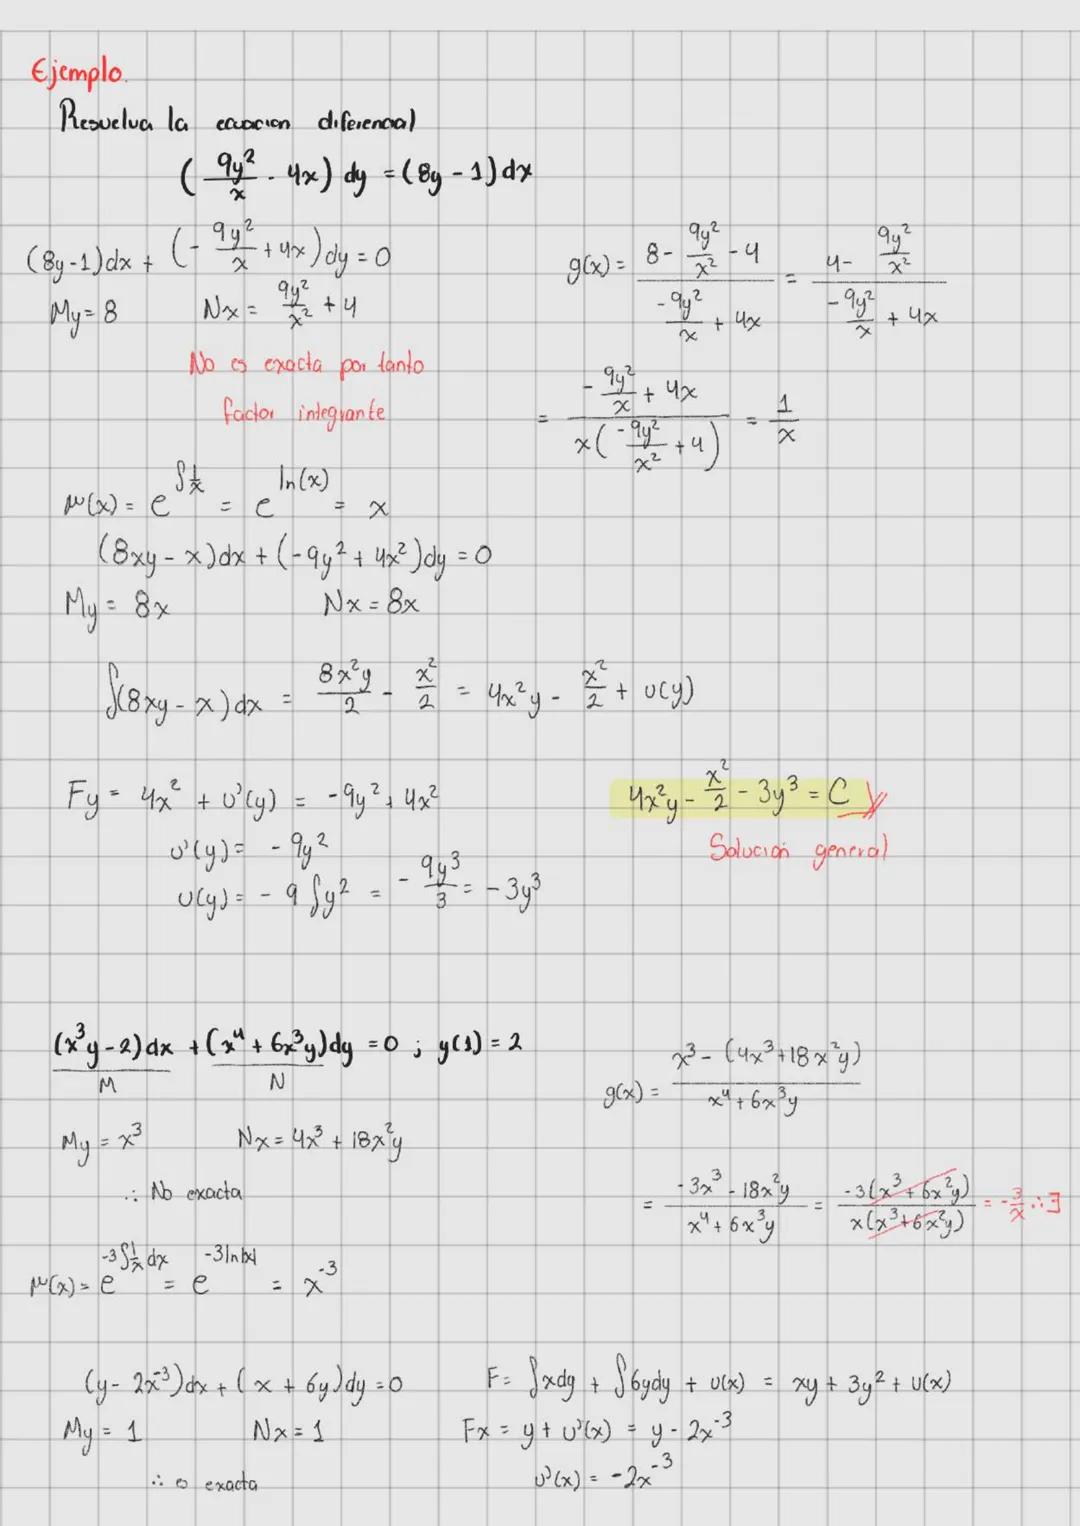 Ejemplo.
Resuelva la ecuacion diferencial
( 9y²/x - 4x) dy = (8y - 1) dx
(8y-1)dx + (- 9y²/x + 4x) dy = 0
My = 8 Nx = 9y²/x² + 4
No es exacta por tanto
factor integrante
g(x) = (8 - 9y²/x² - 4)/(-9y²/x + 4x) = (4 - 9y²/x²)/(-9y²/x + 4x)
= (- 9y²/x + 4x)/(x(-9y²/x² + 4)) = 1/x
μ(x) = e^∫1/x = e^ln(x) = x
(8xy - x)dx + (-9y² + 4x²)dy = 0
My = 8x Nx = 8x
∫(8xy - x)dx = 8x²y/2 - x²/2 = 4x²y - x²/2 + υ(y)
Fy = 4x² + υ'(y) = -9y² + 4x²
υ'(y) = - 9y²
υ(y) = - 9 ∫y² = - 9y³/3 = -3y³
4x²y - x²/2 - 3y³ = C
Solución general
(x³y - 2) dx + (x⁴ + 6x³y) dy = 0 ; y(1) = 2
M N
My = x³ Nx = 4x³ + 18x²y
∴ No exacta
g(x) = (x³ - (4x³ + 18x²y))/(x⁴ + 6x³y)
= (-3x³ - 18x²y)/(x⁴ + 6x³y) = -3(x³ + 6x²y)/x(x³ + 6x²y) = -3/x ∴ ∃
μ(x) = e^-3∫1/x dx = e^-3ln|x| = x⁻³
(y - 2x⁻³)dx + (x + 6y)dy = 0
My = 1 Nx = 1
∴ es exacta
F = ∫xdy + ∫6ydy + υ(x) = xy + 3y² + υ(x)
Fx = y + υ'(x) = y - 2x⁻³
υ'(x) = -2x⁻³